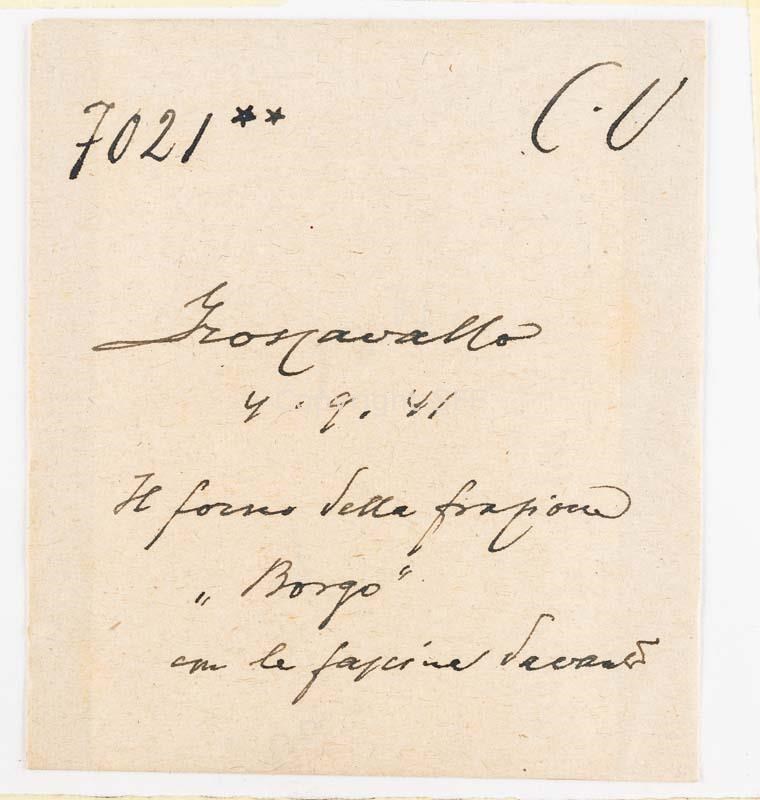 7021** C.V
Groscavallo
4.9.41
Il forno della frazione
„Borgo"
con le fascine davanti